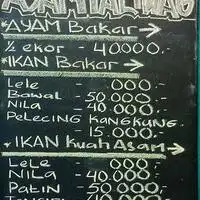 *AYAM Bakar →
½ ekor - 40000.
*IKAN Bakar →
Lele - 000.
Bawal - 50.000.
Nila - 40.000.
Pelecing KANGKUNG.
15.000.
* IKAN Kuah Asam →
LELE - 000.
NILA - 40.000
PATIN - 50.000